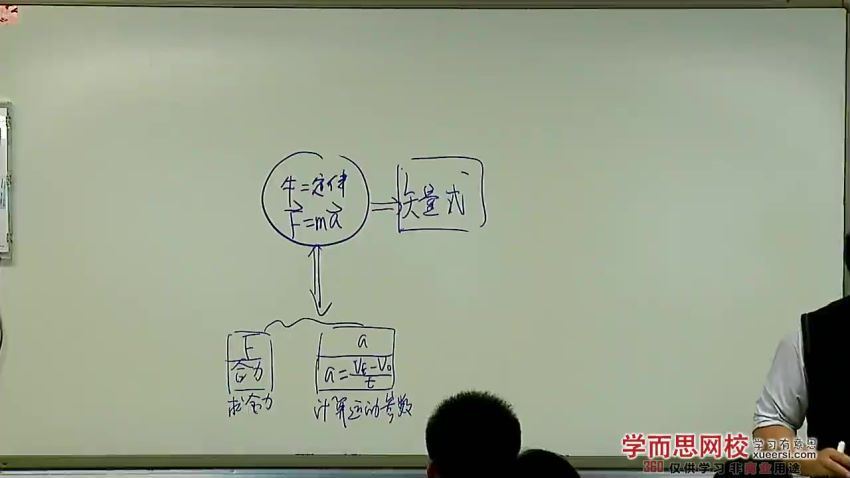 牛二定律
F=ma
矢量式
F
合力
求合力
a
a=Vt-V0/t
计算运动参数
学而思网校
学习有意思
xueersi.com
360 仅供学习 非商业用途